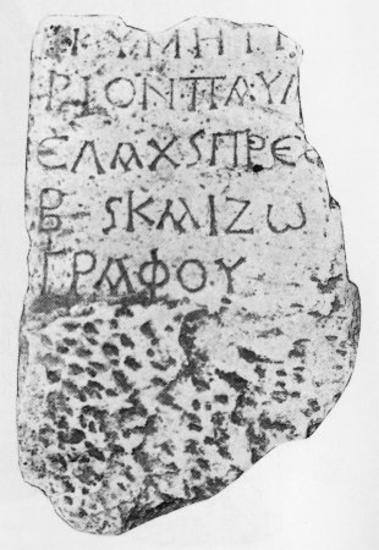 ΚΥΜΗΤΗ
ΡΙΟΝ·ΠΑΥΛ
ΕΛΑΧϚΠΡΕϹ
Β ϚΚΑΙΖω
ΓΡΑΦΟΥ